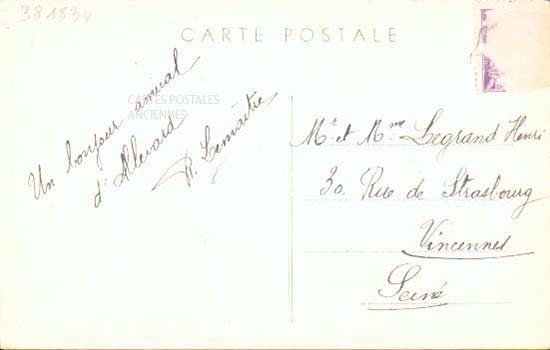 381834
CARTE POSTALE
CARTES POSTALES
ANCIENNES
Un bonjour amical
d'Allevard
R. Lemaitre
Mr et Mme Legrand Henri
30 Rue de Strasbourg
Vincennes
Seine